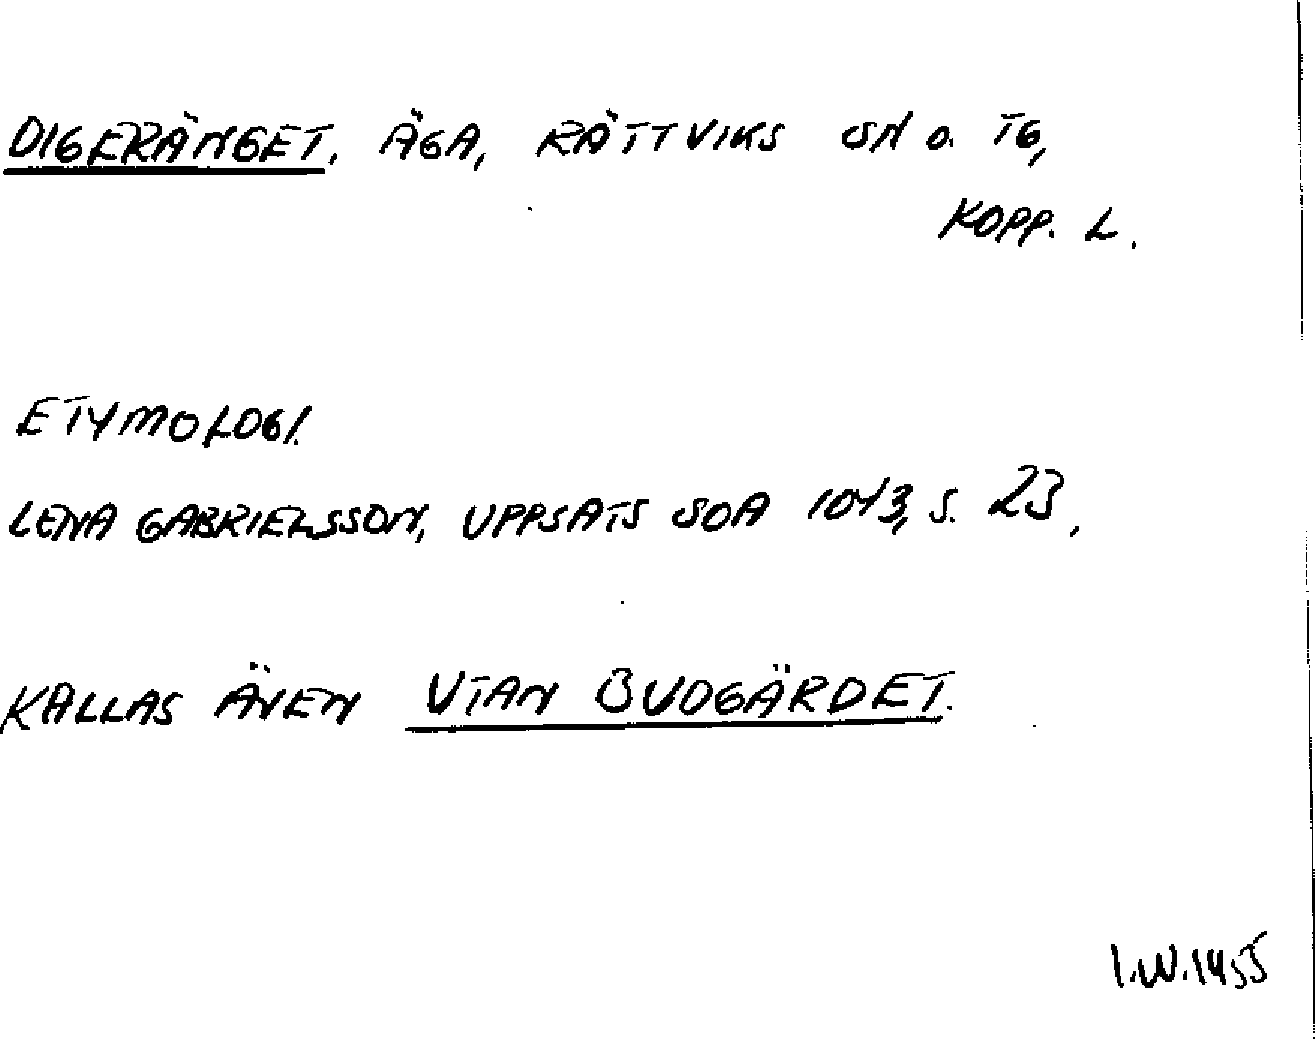 DIGERÄNGET, ÄGA, RÄTTVIKS SN O. TG,
KOPP. L.
ETYMOLOGI.
LENA GABRIELSSON, UPPSATS SOA 1043, S. 23,
KALLAS ÄVEN UTAN BUDGÄRDET.
I.W.1455